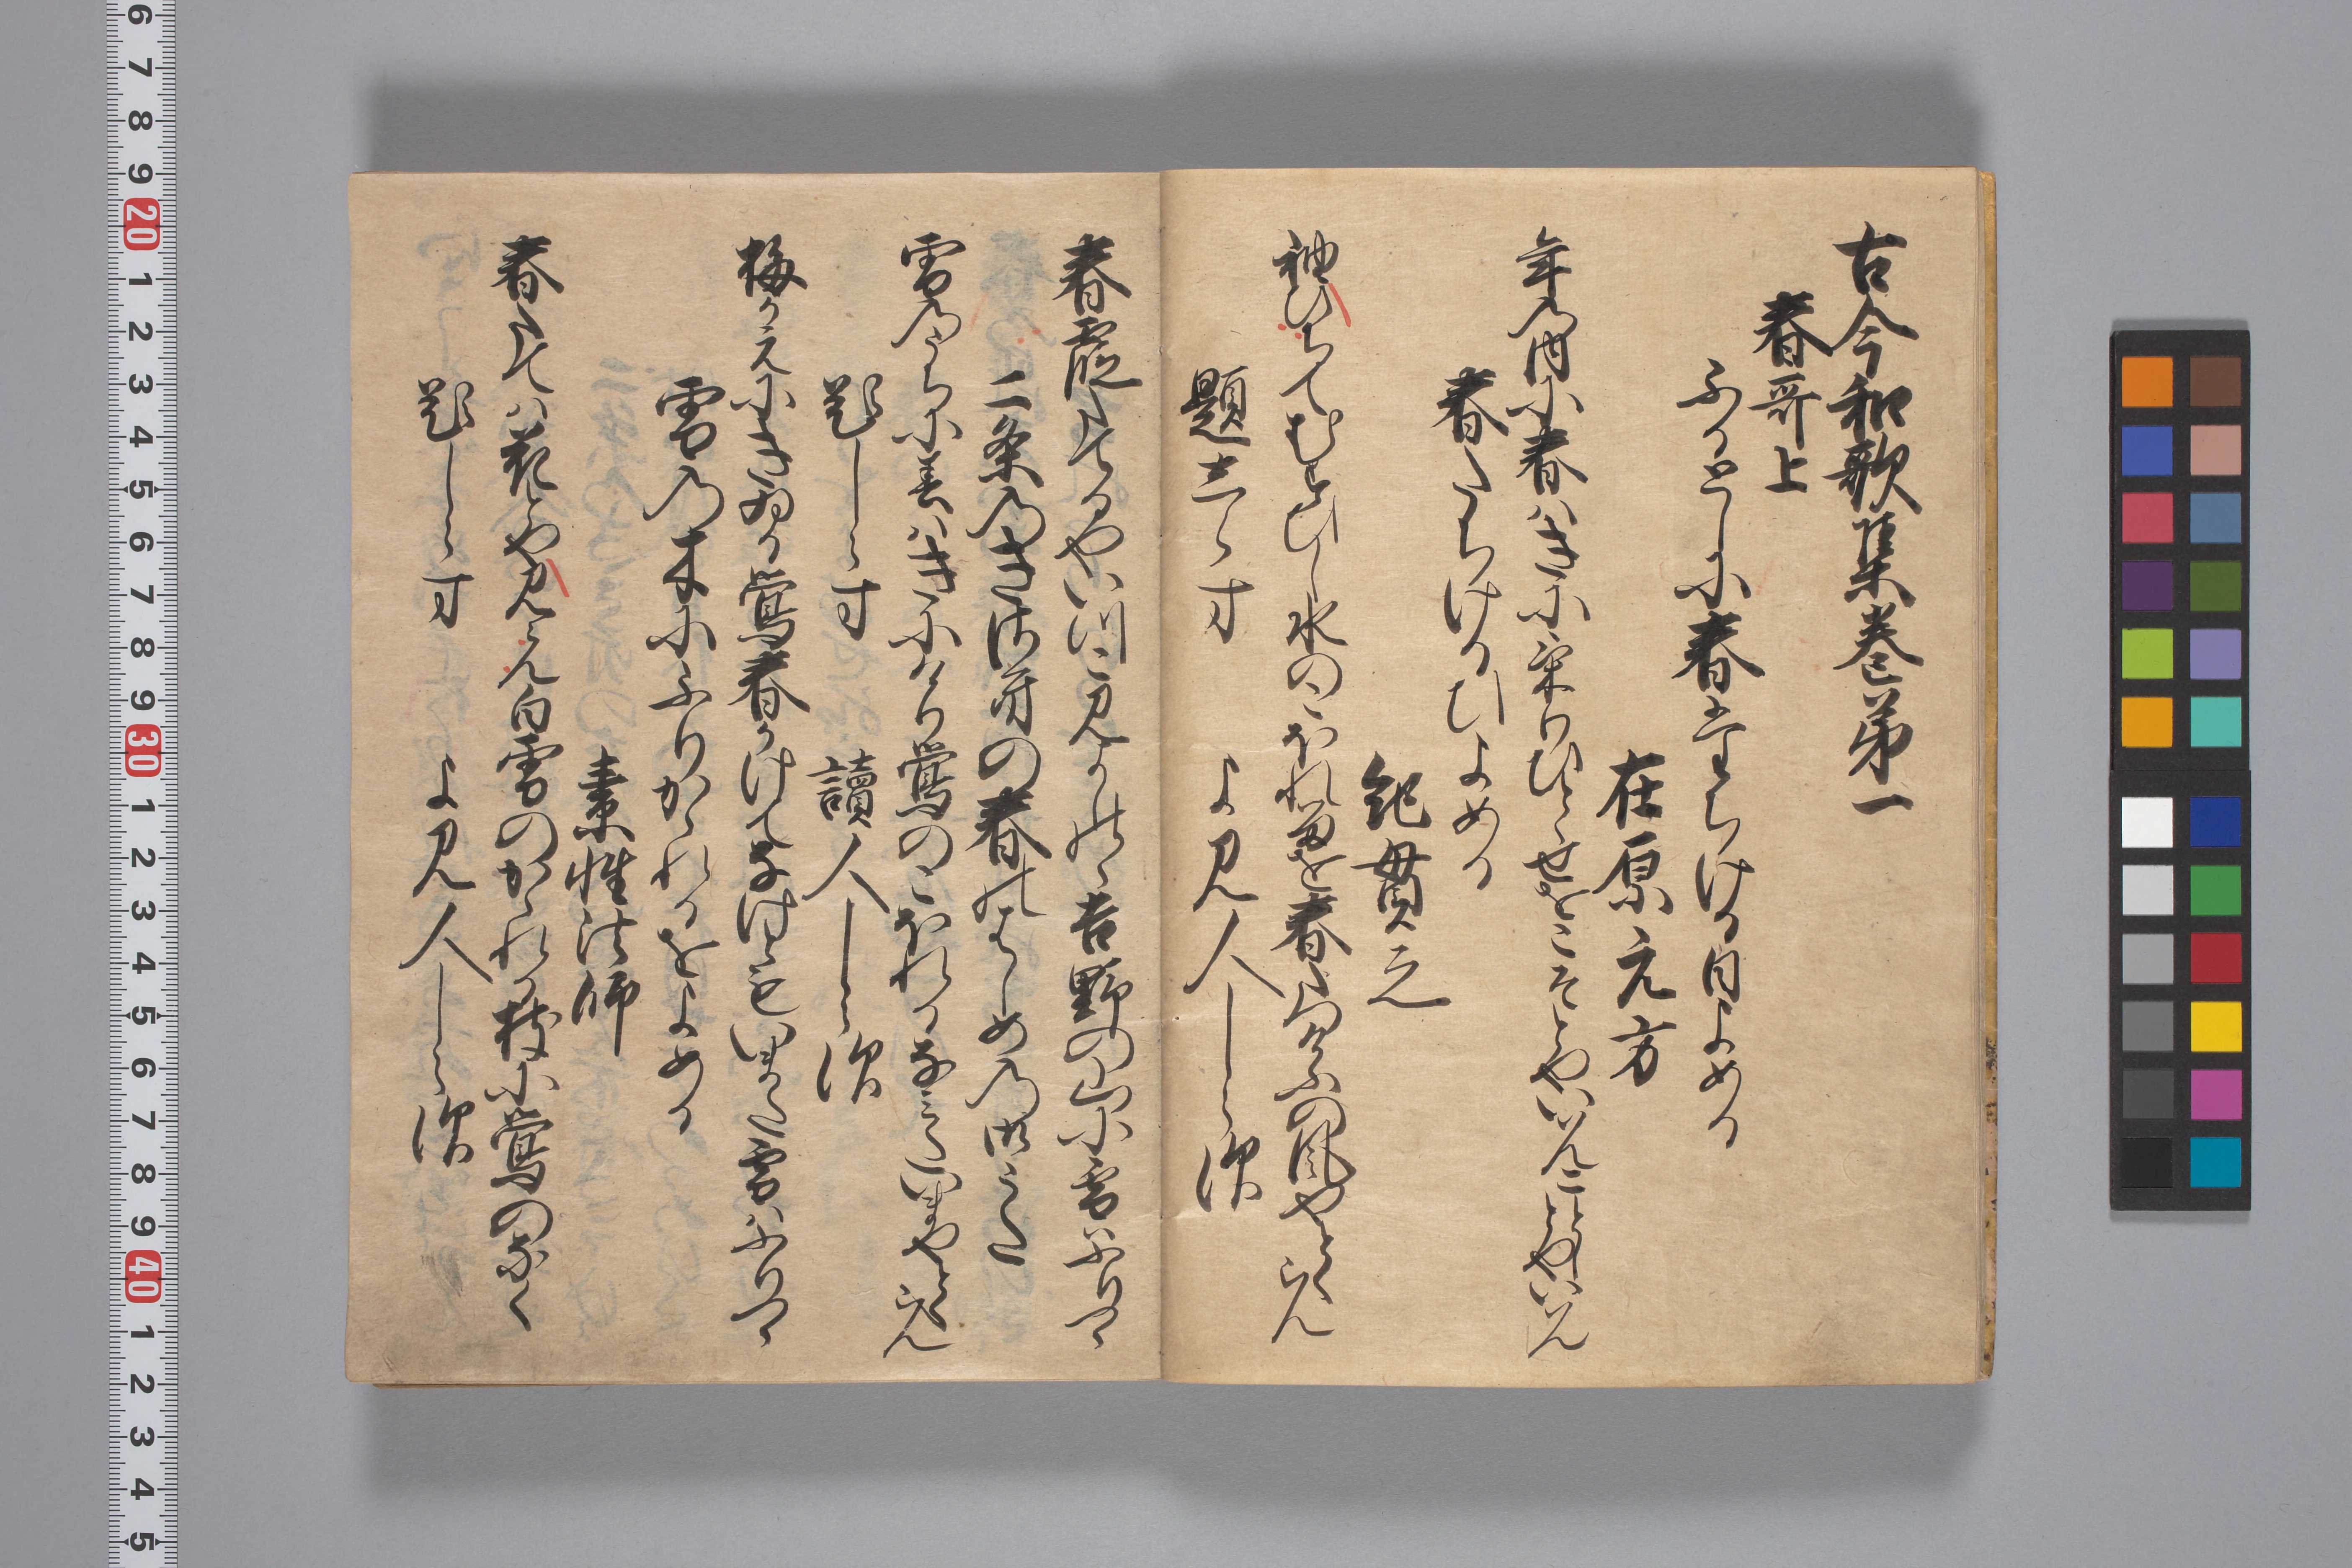 古今和歌集巻第一
春哥上
ふるとしに春たちける日よめる
在原元方
年の内に春はきにけりひとゝせをこそとやいはんことしとやいはん
春たちける日よめる
紀貫之
袖ひちてむすひし水のこほれるを春立けふの風やとくらん
題しらす
よみ人しらす
春霞たてるやいつこみよしのゝ吉野の山に雪はふりつゝ
二条のきさきの春のはしめの御うた
雪のうちに春はきにけり鶯のこほれるなみたいまやとくらん
題しらす
讀人しらす
梅かえにきゐる鶯春かけてなけともいまた雪はふりつゝ
雪の木にふりかゝれるをよめる
素性法師
春たては花とや見らん白雪のかゝれる枝に鶯のなく
題しらす
よみ人しらす
6 7 8 9 20 1 2 3 4 5 6 7 8 9 30 1 2 3 4 5 6 7 8 9 40 1 2 3 4 5